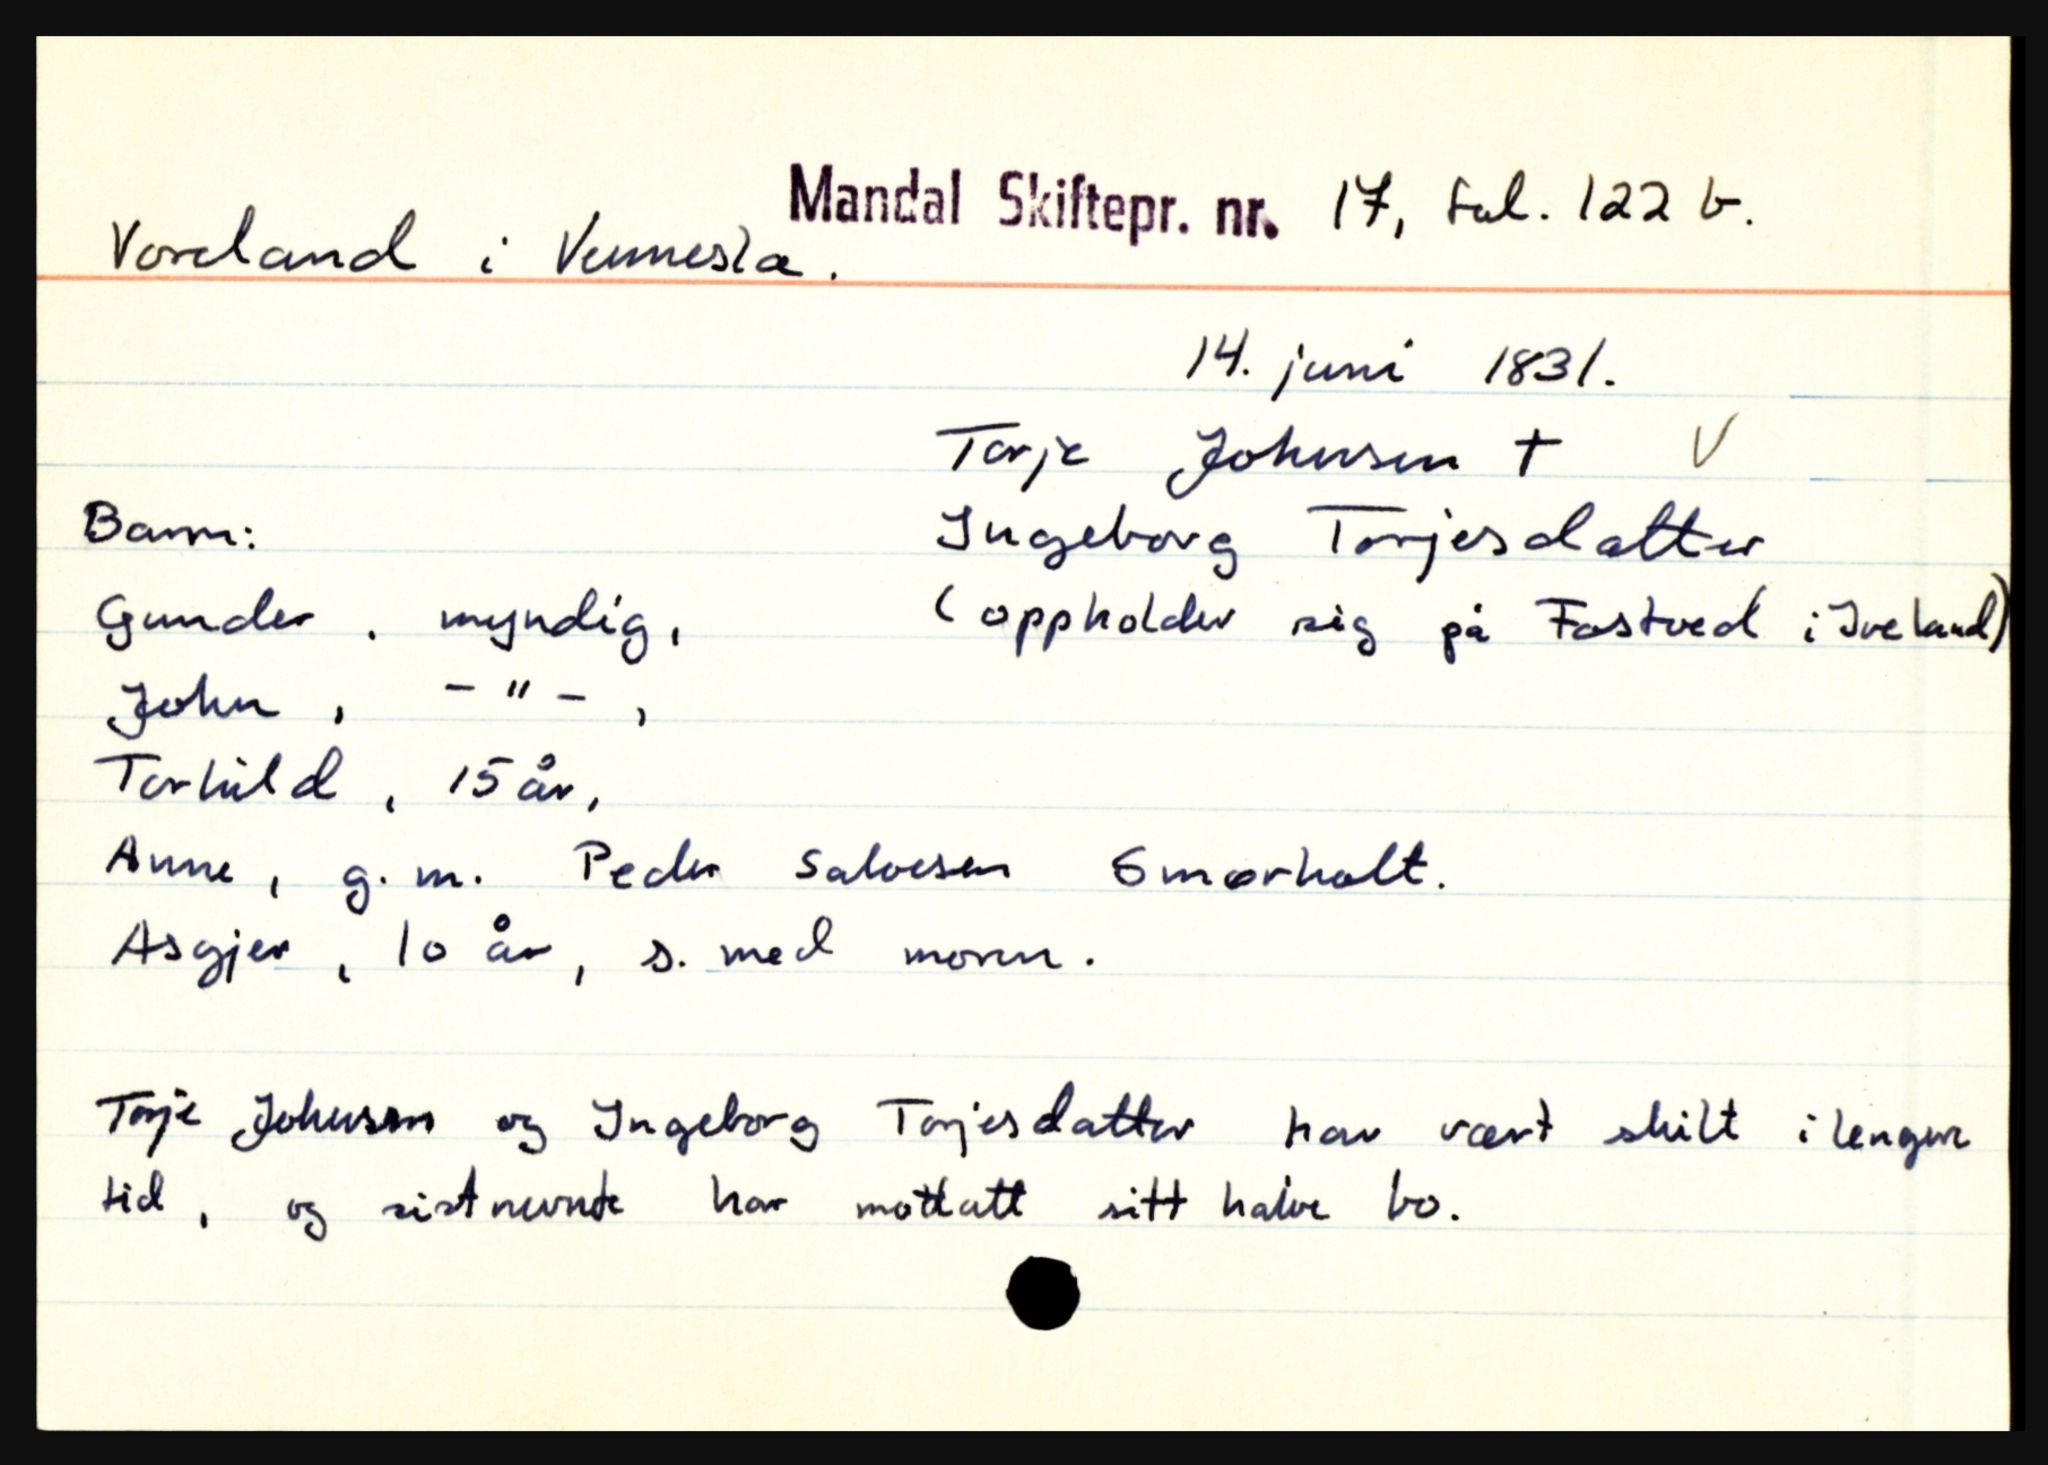 Mandal Skiftepr. nr. 17, fol. 122 b.
Voreland i Vennesla.
14. juni 1831.
Torje Johnsen † V
Ingeborg Torjesdatter
(oppholder sig på Fostved i Iveland)
Barn:
Gunder, myndig,
John, - " - ,
Torhild, 15 år,
Anne, g. m. Peder Salvesen Smørholt.
Asgjer, 10 år, s. med moren.
Torje Johnsen og Ingeborg Torjesdatter har vært skilt i lengre
tid, og sistnevnte har mottatt sitt halve bo.